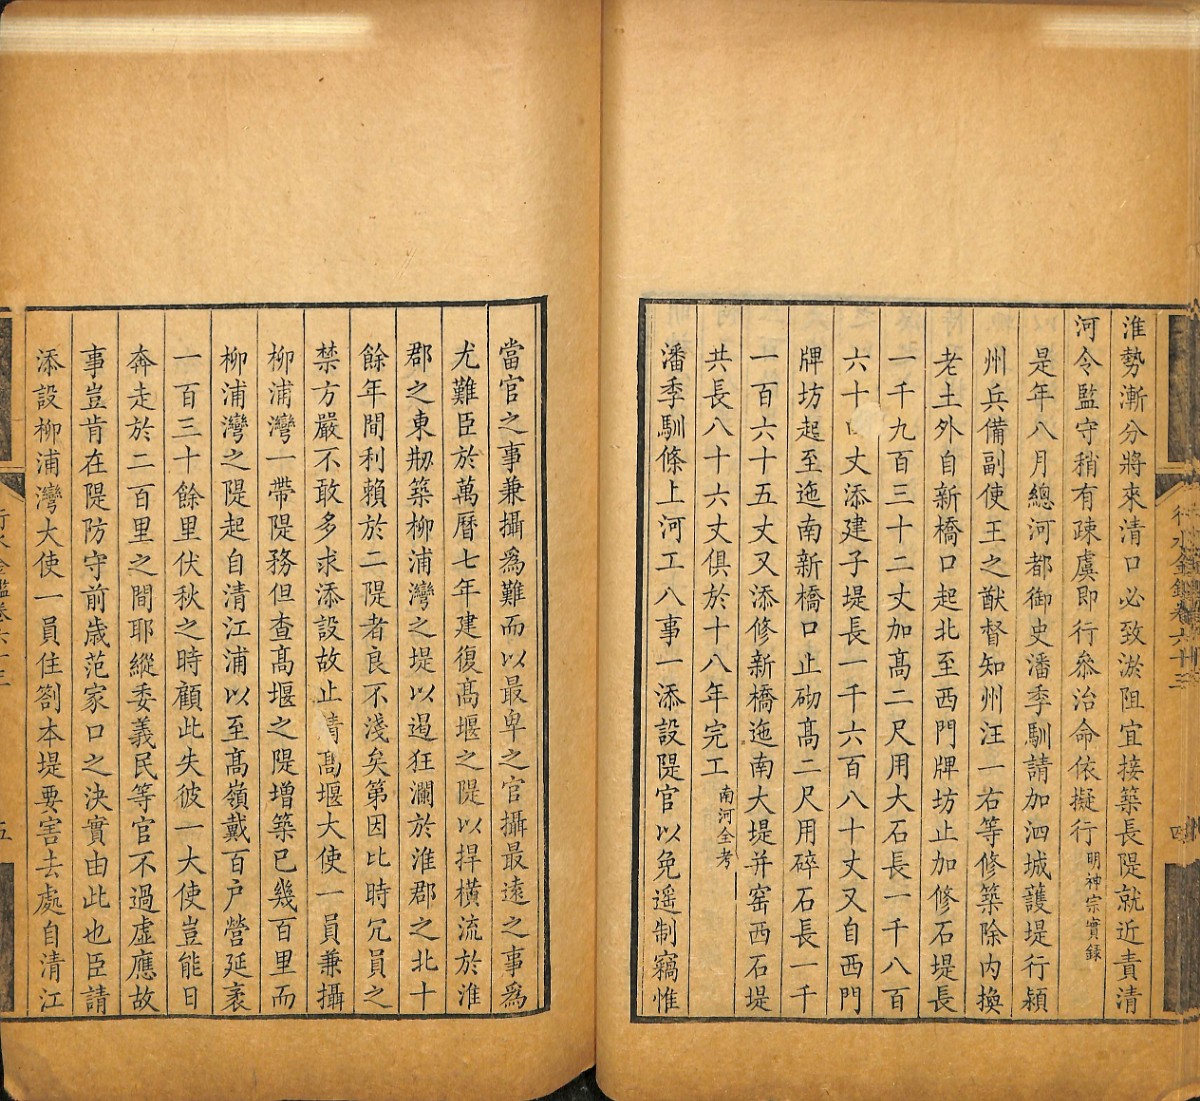 淮勢漸分將來清口必致淤阻宜接築長隄就近責清
河令監守稍有疎虞即行叅治命依擬行明神宗實録
是年八月總河都御史潘季馴請加泗城護堤行潁
州兵備副使王之猷督知州汪一右等修築除内換
老土外自新橋口起北至西門牌坊止加修石堤長
一千九百三十二丈加髙二尺用大石長一千八百
六十丈添建子堤長一千六百八十丈又自西門
牌坊起至迤南新橋口止砌髙二尺用碎石長一千
一百六十五丈又添修新橋迤南大堤并窑西石堤
共長八十六丈俱於十八年完工南河全考
潘季馴條上河工八事一添設隄官以免遥制竊惟
行水金鑑卷六十三
四
當官之事兼攝爲難而以最卑之官攝最遠之事爲
尤難臣於萬曆七年建復髙堰之隄以捍横流於淮
郡之東刱築柳浦灣之堤以遏狂瀾於淮郡之北十
餘年間利賴於二隄者良不淺矣第因比時冗員之
禁方嚴不敢多求添設故止請髙堰大使一員兼攝
柳浦灣一帶隄務但查髙堰之隄增築已幾百里而
柳浦灣之隄起自清江浦以至髙嶺戴百户營延袤
一百三十餘里伏秋之時顧此失彼一大使豈能日
奔走於二百里之間耶縱委義民等官不過虚應故
事豈肯在隄防守前歲范家口之决實由此也臣請
添設柳浦灣大使一員住劄本堤要害去處自清江
行水金鑑卷六十三
五